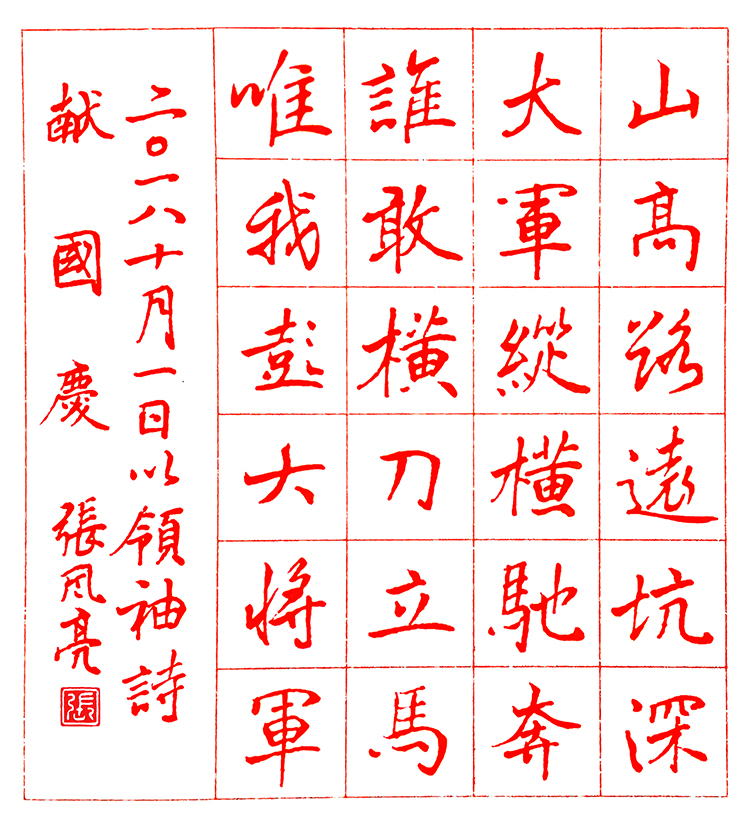 山高路遠坑深
大軍縱橫馳奔
誰敢橫刀立馬
唯我彭大將軍
二〇一八十月一日以領袖詩
献國慶 張风亮
張